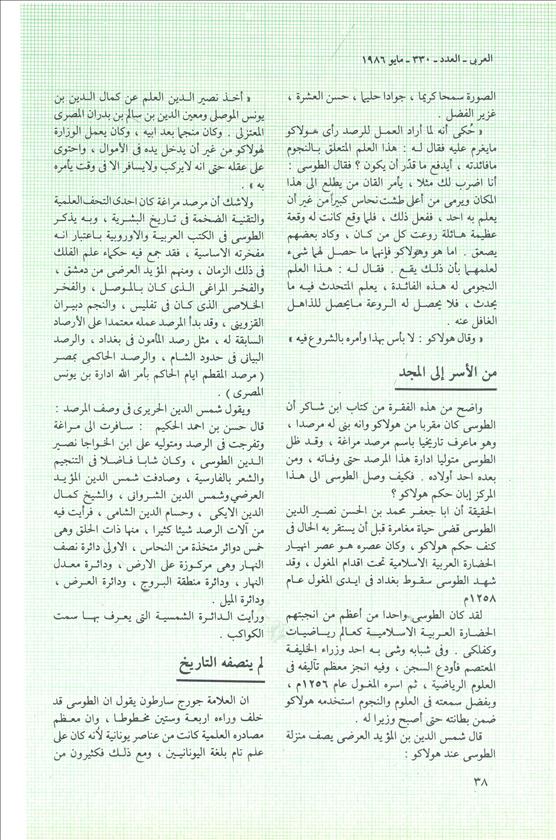 العربى - العدد - ٣٣٠ - مايو ١٩٨٦
الصورة سمحا كريما ، جوادا حليما ، حسن العشرة ،
غزير الفضل .
« حُكى أنه لما أراد العمل للرصد رأى هولاكو
مايغرم عليه فقال لـه : هذا العلم المتعلق بالنجوم
مافائدته ، أيدفع ما قدّر أن يكون ؟ فقال الطوسى :
أنا اضرب لك مثلا ، يأمر القان من يطلع الى هذا
المكان ويرمى من أعلى طشت نحاس كبيرا من غير أن
يعلم به احد ، ففعل ذلك ، فلما وقع كانت له وقعة
عظيمة هائلة روعت كل من كان ، وكاد بعضهم
يصعق . اما هو وهولاكو فإنهما ما حصل لهما شىء
لعلمهما بأن ذلك يقع . فقال لـه : هـذا العلم
النجومى له هـذه الفائدة ، يعلم المتحدث فيه ما
يحدث ، فلا يحصل له الروعة مايحصل للذاهل
الغافل عنه .
« وقال هولاكو : لا بأس بهذا وأمره بالشروع فيه »
من الأسر إلى المجد
واضح من هذه الفقرة من كتاب ابن شاكر أن
الطوسى كان مقربا من هولاكو وانه بنى له مرصدا ،
وهو ماعرف تاريخيا باسم مرصد مراغة ، وقـد ظل
الطوسى متوليا ادارة هذا المرصد حتى وفاته ، ومن
بعده احد أولاده . فكيف وصل الطوسى الى هـذا
المركز إبان حكم هولاكو ؟
الحقيقة أن ابا جعفر محمد بن الحسن نصير الدين
الطوسى قضى حياة مغامرة قبل أن يستقر به الحال فى
كنف حكم هولاكو ، وكان عصره هـو عصر انهيـار
الحضارة العربية الاسلامية تحت اقدام المغول ، وقد
شهـد الطوسى سقوط بغداد فى ايدى المغول عـام
١٢٥٨م
لقد كان الطوسى واحدا من أعظم من انجبتهم
الحضارة العربيـة الاسلاميـة كعالم رياضيـات
وكفلكى . وفى شبابه وشى بـه احد وزراء الخليفة
المعتصم فأودع السجن ، وفيه انجز معظم تآليفه فى
العلوم الرياضية ، ثم اسره المغول عام ١٢٥٦م ،
وبفضل سمعته فى العلوم والنجوم استخدمه هولاكو
ضمن بطانته حتى أصبح وزيرا له .
قال شمس الدين بن المؤيد العرضى يصف منزلة
الطوسى عند هولاكو :
« أخـذ نصير الـدين العلم عن كمال الـدين بن
يونس الموصلى ومعين الدين بن سالم بن بدران المصرى
المعتزلى . وكان منجما بعد ابيه ، وكان يعمل الوزارة
لهولاكو من غير أن يدخل يده فى الأموال ، واحتوى
على عقله حتى انه لايركب ولايسافر الا فى وقت يأمره
به » .
ولاشك أن مرصد مراغة كان احدى التحف العلمية
والتقنية الضخمة فى تـاريخ البشرية ، وبـه يذكـر
الطوسى فى الكتب العربية والاوروبية باعتبار انـه
مفخرته الاساسية ، فقد جمع فيه حكماء علم الفلك
فى ذلك الزمان ، ومنهم المؤيد العرضى من دمشق ،
والفخـر المراغى الـذى كـان بـالموصل ، والفخر
الخلاصى الذى كان فى تفليس ، والنجم دبيران
القزوينى ، وقد بدأ المرصد عمله معتمدا على الأرصاد
السابقة له ، مثل رصد المأمون فى بغداد ، والرصد
البيانى فى حدود الشام ، والرصد الحاكمى بمصر
( مرصد المقطم ايام الحاكم بأمر الله ادارة بن يونس
المصرى ) .
ويقول شمس الدين الحريرى فى وصف المرصد :
قال حسن بن احمد الحكيم : سافرت الى مراغة
وتفرجت فى الرصد ومتوليه على ابن الخواجا نصير
الـدين الطوسى ، وكـان شابـا فاضـلا فى التنجيم
والشعر بالفارسية ، وصادفت شمس الدين المؤيـد
العرضى وشمس الدين الشروانى ، والشيخ كمـال
الدين الايكى ، وحسام الدين الشامى ، فرأيت فيه
من آلات الرصد شيئا كثيرا ، منها ذات الحلق وهى
خمس دوائر متخذة من النحاس ، الاولى دائرة نصف
النهار وهى مركوزة على الارض ، ودائرة معـدل
النهار ، ودائرة منطقة البروج ، ودائرة العرض ،
ودائرة الميل .
ورأيت الـدائـرة الشمسيـة التى يعـرف بهـا سمت
الكواكب .
لم ينصفه التاريخ
ان العلامة جورج سارطون يقول ان الطوسى قد
خلف وراءه اربعـة وستين مخـطوطـا ، وان معـظم
مصادره العلمية كانت من عناصر يونانية لأنه كان على
علم تام بلغة اليونانيـين ، ومع ذلـك فكثيرون من
٣٨